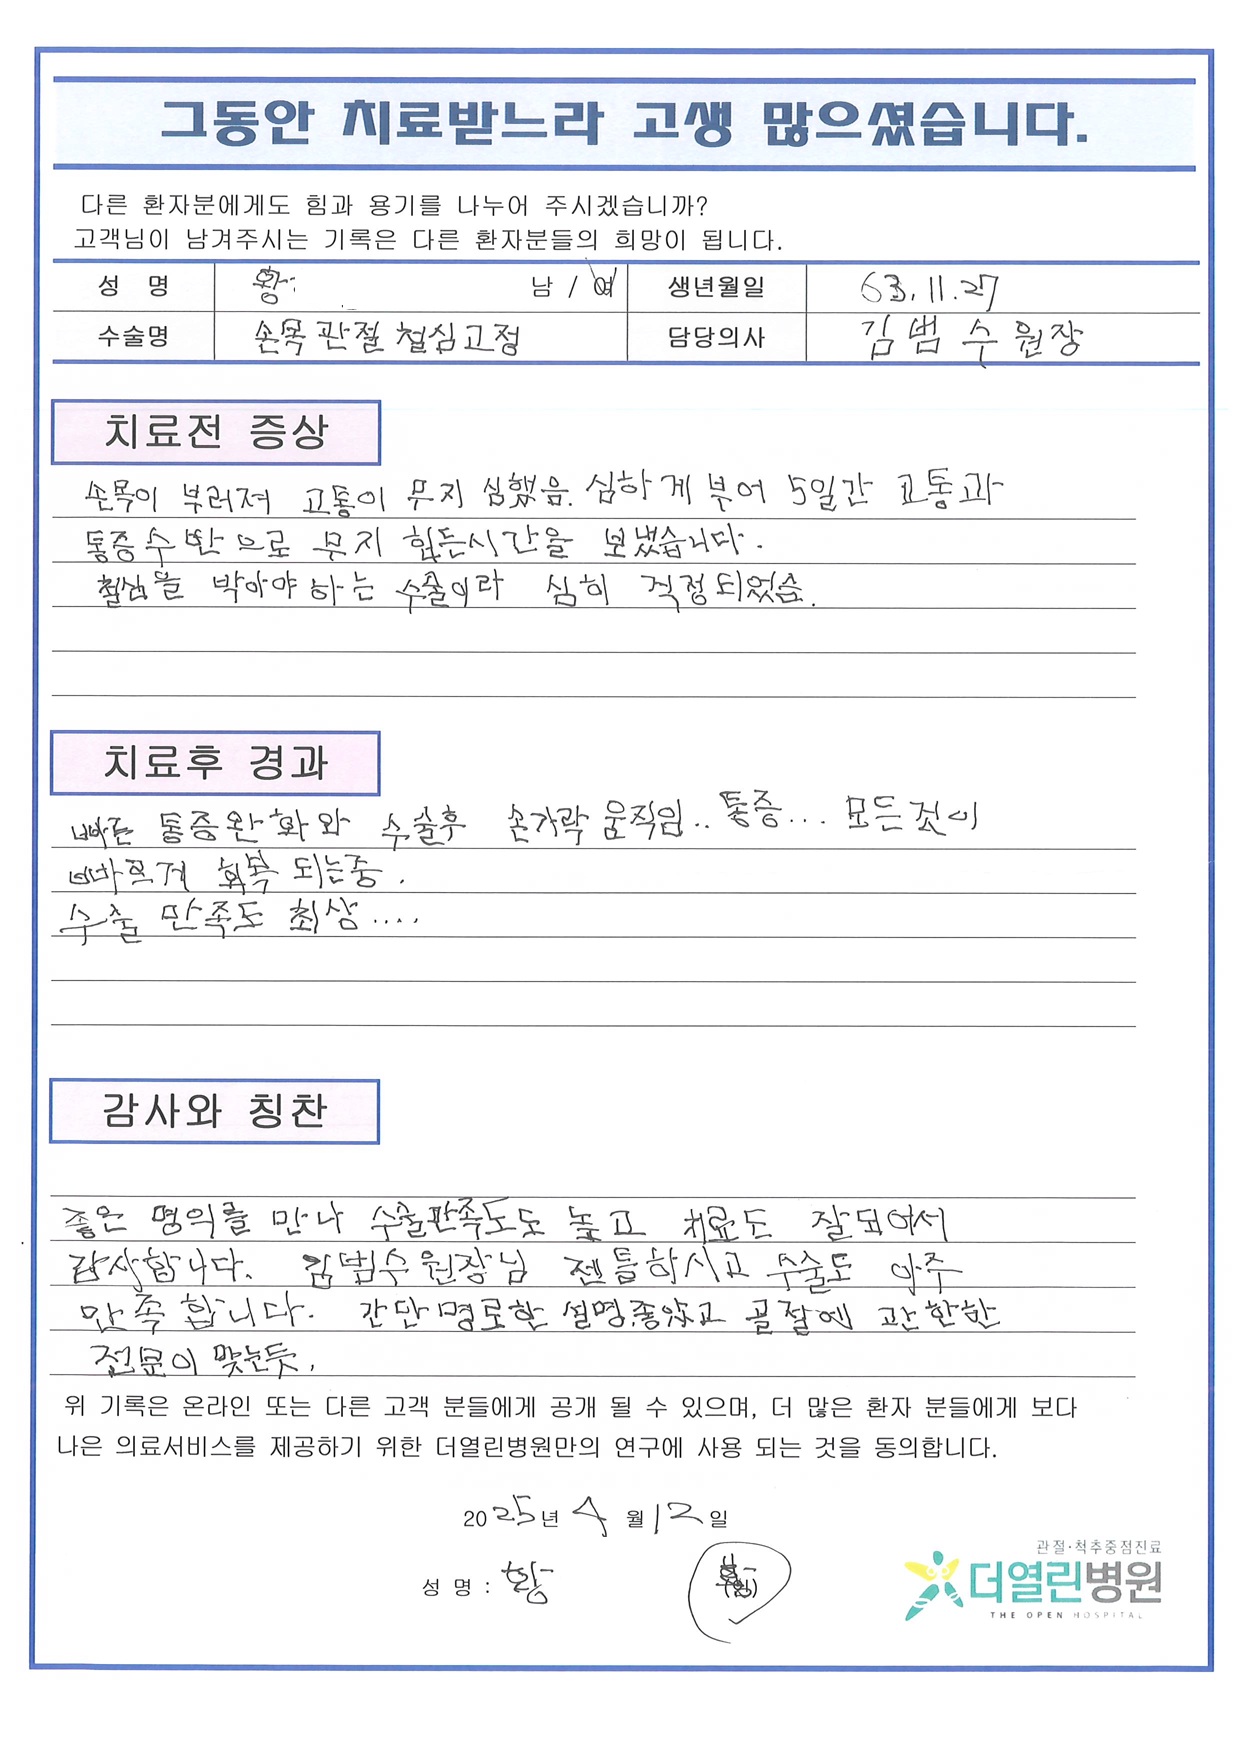 그동안 치료받느라 고생 많으셨습니다.
다른 환자분에게도 힘과 용기를 나누어 주시겠습니까?
고객님이 남겨주시는 기록은 다른 환자분들의 희망이 됩니다.
성 명 황 남 / 여 생년월일 63.11.27
수술명 손목관절 철심고정 담당의사 김범수 원장
치료전 증상
손목이 부러져 고통이 무지 심했음. 심하게 부어 5일간 고통과
통증수반으로 무지 힘든시간을 보냈습니다.
철심을 박아야 하는 수술이라 심히 걱정되었슴.
치료후 경과
빠른 통증완화와 수술후 손가락 움직임.. 통증... 모든것이
빠르게 회복 되는중.
수술 만족도 최상....
감사와 칭찬
좋은 명의를 만나 수술만족도도 높고 치료도 잘되어서
감사합니다. 김범수원장님 젠틀하시고 수술도 아주
만족합니다. 간단명료한 설명.좋았고 골절에 관한한
전문이 맞는듯.
위 기록은 온라인 또는 다른 고객 분들에게 공개 될 수 있으며, 더 많은 환자 분들에게 보다
나은 의료서비스를 제공하기 위한 더열린병원만의 연구에 사용 되는 것을 동의합니다.
2025년 4월 12일
성 명 : 황
관절·척추중점진료
더열린병원
THE OPEN HOSPITAL